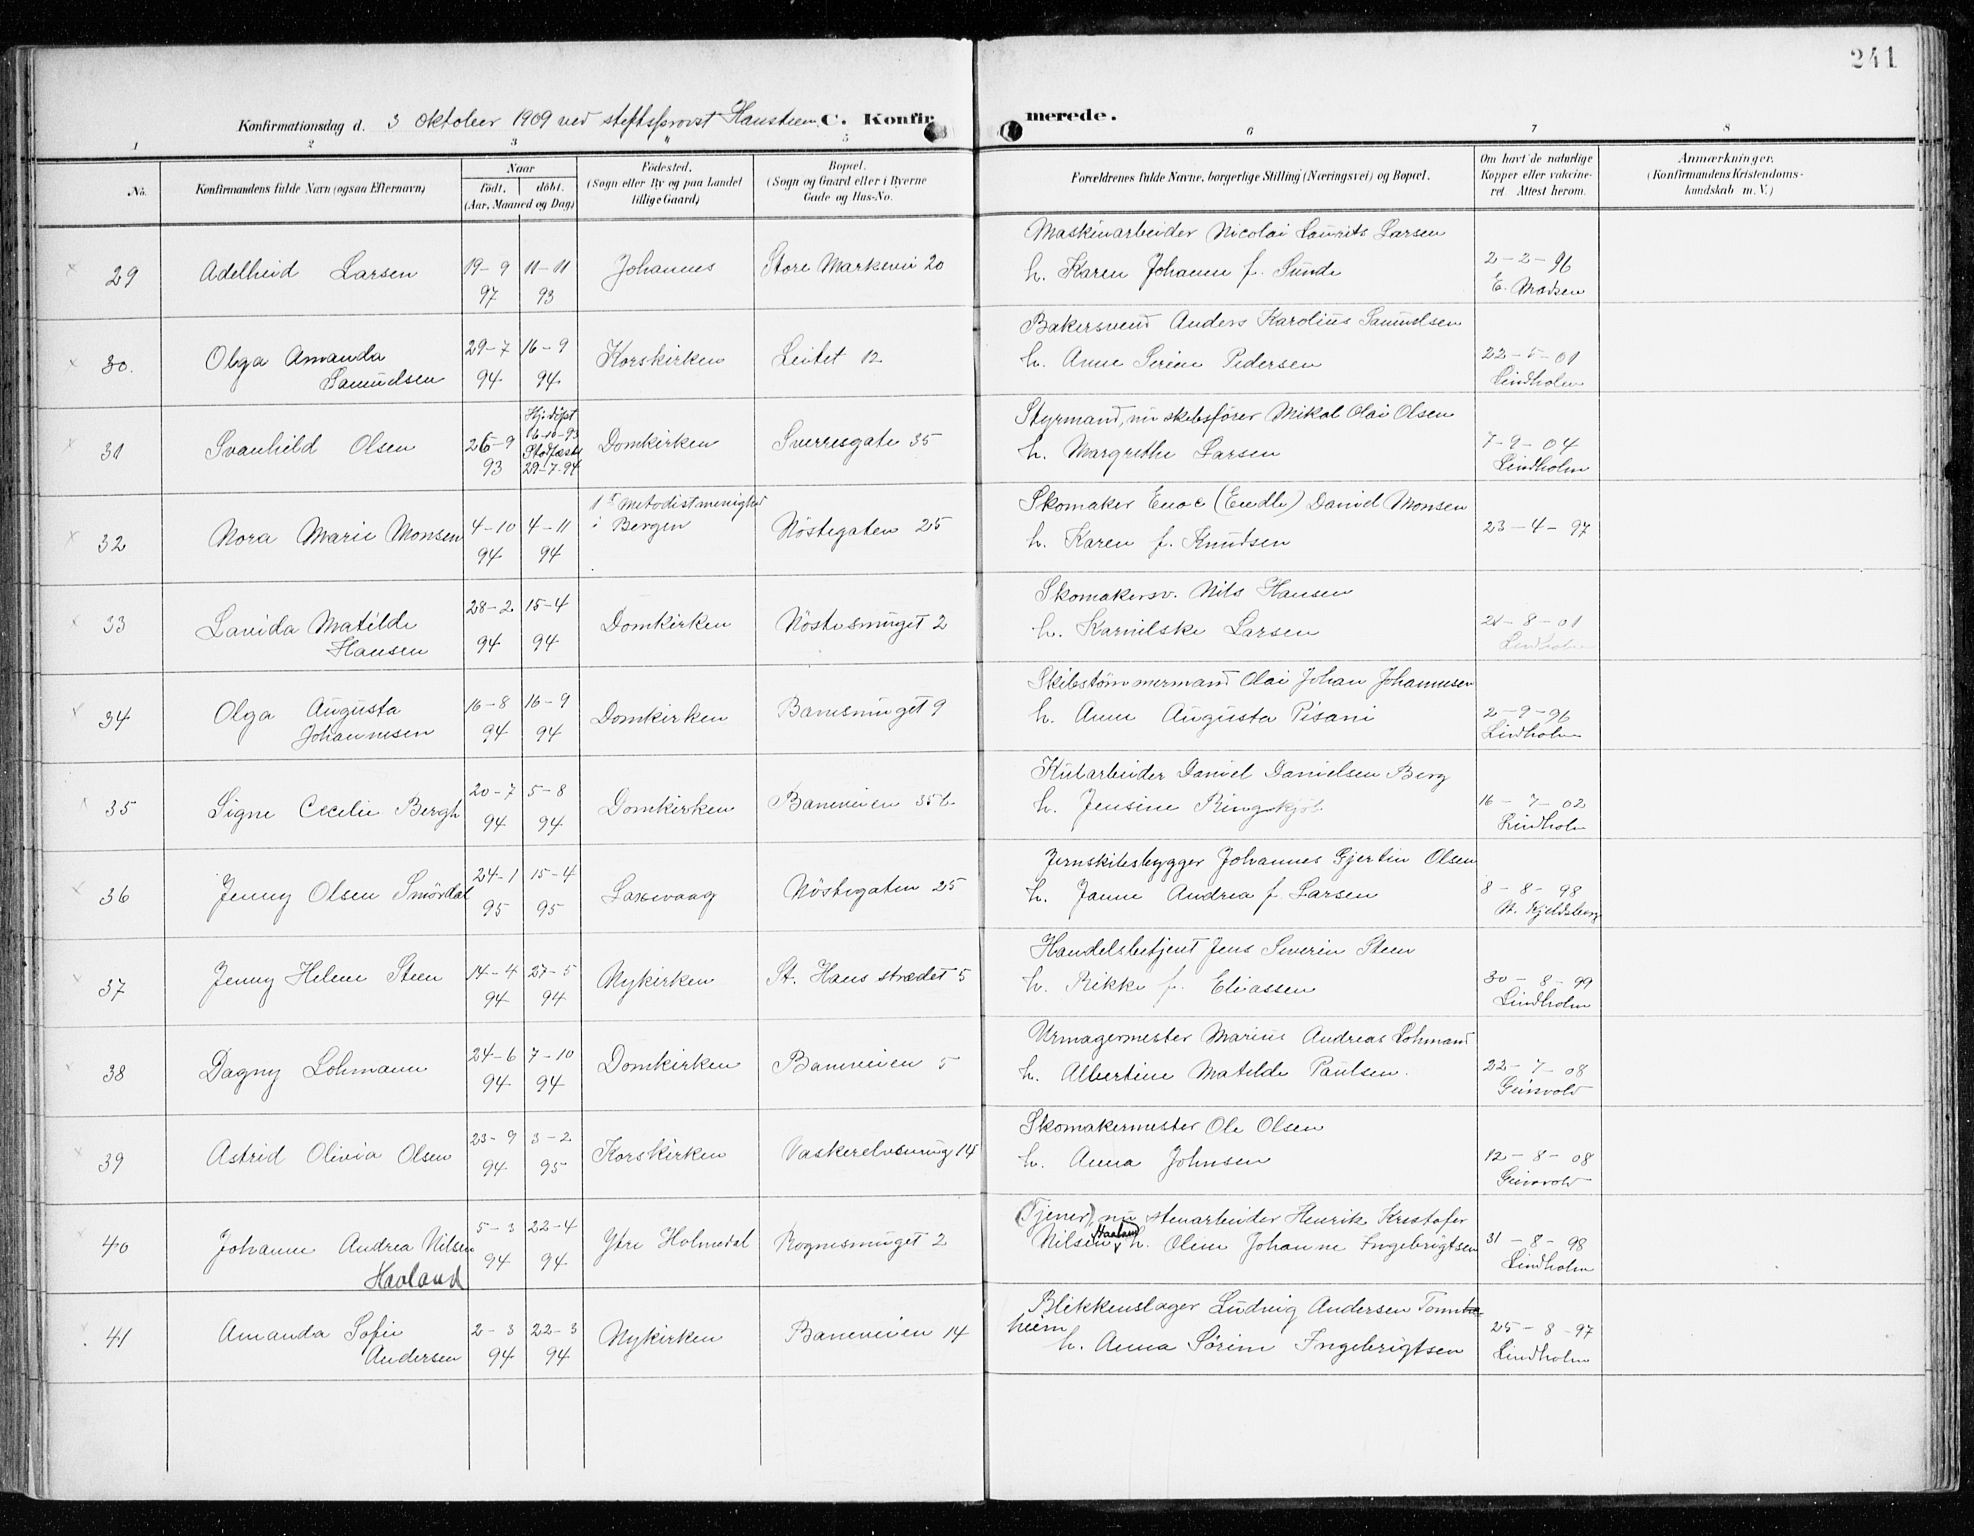 241
Konfirmationsdag d. 3 Oktober 1909 ved stiftsprovst Hansteen C. Konfirmerede.
1 2 3 " 5 6 7 8
No.
Konfirmandens fulde Navn (ogsaa Efternavn)
Naar
Födt. döbt.
(Aar, Maaned og Dag)
Födested.
(Sogn eller By og paa Landet
tillige Gaard)
Bopæl.
(Sogn og Gaard eller i Byerne
Gade og Hus-No.
Forældrenes fulde Navne, borgerlige Stilling (Næringsvei) og Bopæl.
Om havt de naturlige
Kopper eller vakcine-
ret. Attest herom.
Anmærkninger.
(Konfirmandens Kristendoms-
kundskab m. V.)
29 Adelheid Larsen 19-9 97 11-11 93 Johannes Store Markevei 20
Maskinarbeider Nicolai Laurits Larsen
h. Karen Johanne f. Sunde
2-2-96
E. Madsen
30. Olga Amanda
Samuelsen
29-7 94 16-9 94 Korskirken Leitet 12
Bakersvend Anders Karolius Samuelsen
h. Anne Serine Pedersen
22-5-01
Lindholm
31 Svanhild Olsen 26-9 93
Hj.döpt
16-10-93
Stadfæst
29-7-94
Domkirken Sverresgate 35
Styrmand, nu skibsfører Mikal Olai Olsen
h. Margrethe Larsen
7-9-04
Lindholm
32 Nora Marie Monsen 4-10 94 4-11 94
1st Metodistmenighed
i Bergen
Nöstegaten 25
Skomaker Enoc (Endle) David Monsen
h. Karen f. Knudsen
23-4-97
33 Lavida Matilde
Hansen
28-2 94 15-4 94 Domkirken Nöstesmuget 2
Skomakersv. Nils Hansen
h. Karnilske Larsen
21-8-01
Lindholm
34 Olga Augusta
Johannesen
16-8 94 16-9 94 Domkirken Banesmuget 9
Skibstömmermand Olai Johan Johannesen
h. Anne Augusta Pisani
2-9-96
Lindholm
35 Signe Cecelie Bergh 20-7 94 5-8 94 Domkirken Baneveien 35b
Kularbeider Daniel Danielsen Berg
h. Jensine Ringskjöb
16-7-02
Lindholm
36 Jenny Olsen Smördal 24-1 95 15-4 95 Laxevaag Nöstegaten 25
Jernskibsbygger Johannes Gjertin Olsen
h. Janne Andrea f. Larsen
8-8-98
N. Kjeldsberg
37 Jenny Helene Steen 14-4 94 27-5 94 Nykirken St. Hans strædet 5
Handelsbetjent Jens Severin Steen
h. Rikke f. Eliassen
30-8-99
Lindholm
38 Dagny Lohmann 24-6 94 7-10 94 Domkirken Baneveien 5
Urmagermester Marius Andreas Lohmand
h. Albertine Matilde Paulsen.
22-7-08
Geirsvold
39 Astrid Olivia Olsen 23-9 94 3-2 95 Korskirken Vaskerelvsmug 14
Skomakermester Ole Olsen
h. Anna Johnsen
12-8-08
Geirsvold
40 Johanne Andrea Nilsen
Havland
5-3 94 22-4 94 Ytre Holmedal Rognesmuget 2
(Tjener), nu stenarbeider Henrik Kristofer
Nilsen Haaland h. Oline Johanne Ingebrigtsen
31-8-98
Lindholm
41 Amanda Sofie
Andersen
2-3 94 22-3 94 Nykirken Baneveien 14
Blikkenslager Ludvig Andersen Tonn
heim
h. Anna Sörine Ingebrigtsen
25-8-97
Lindholm